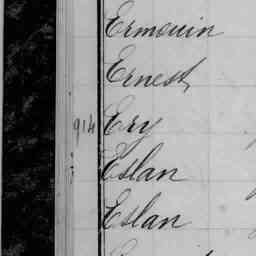 Ermouin
Ernest
914 Ery
Eslan
Eslan